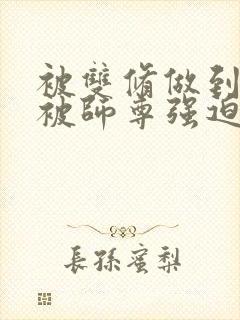 被雙脩做到
被師尊强迫
長孫蜜梨